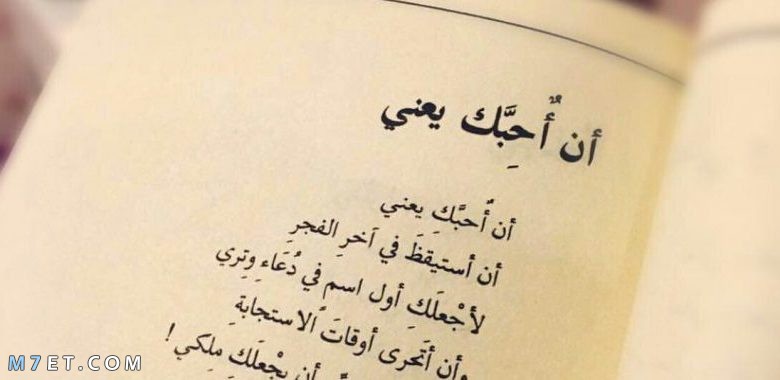 أن أُحِبَّك يعني
أن أُحبَّكِ يعني
أن أستيقظَ في آخرِ الفجرِ
لأجْعلَكِ أول اسم في دُعَاءِ وِتري
وأن أتَحرى أوقاتَ الاستجابةِ
أن يجْعلَكِ ملكي!
M7ET.COM